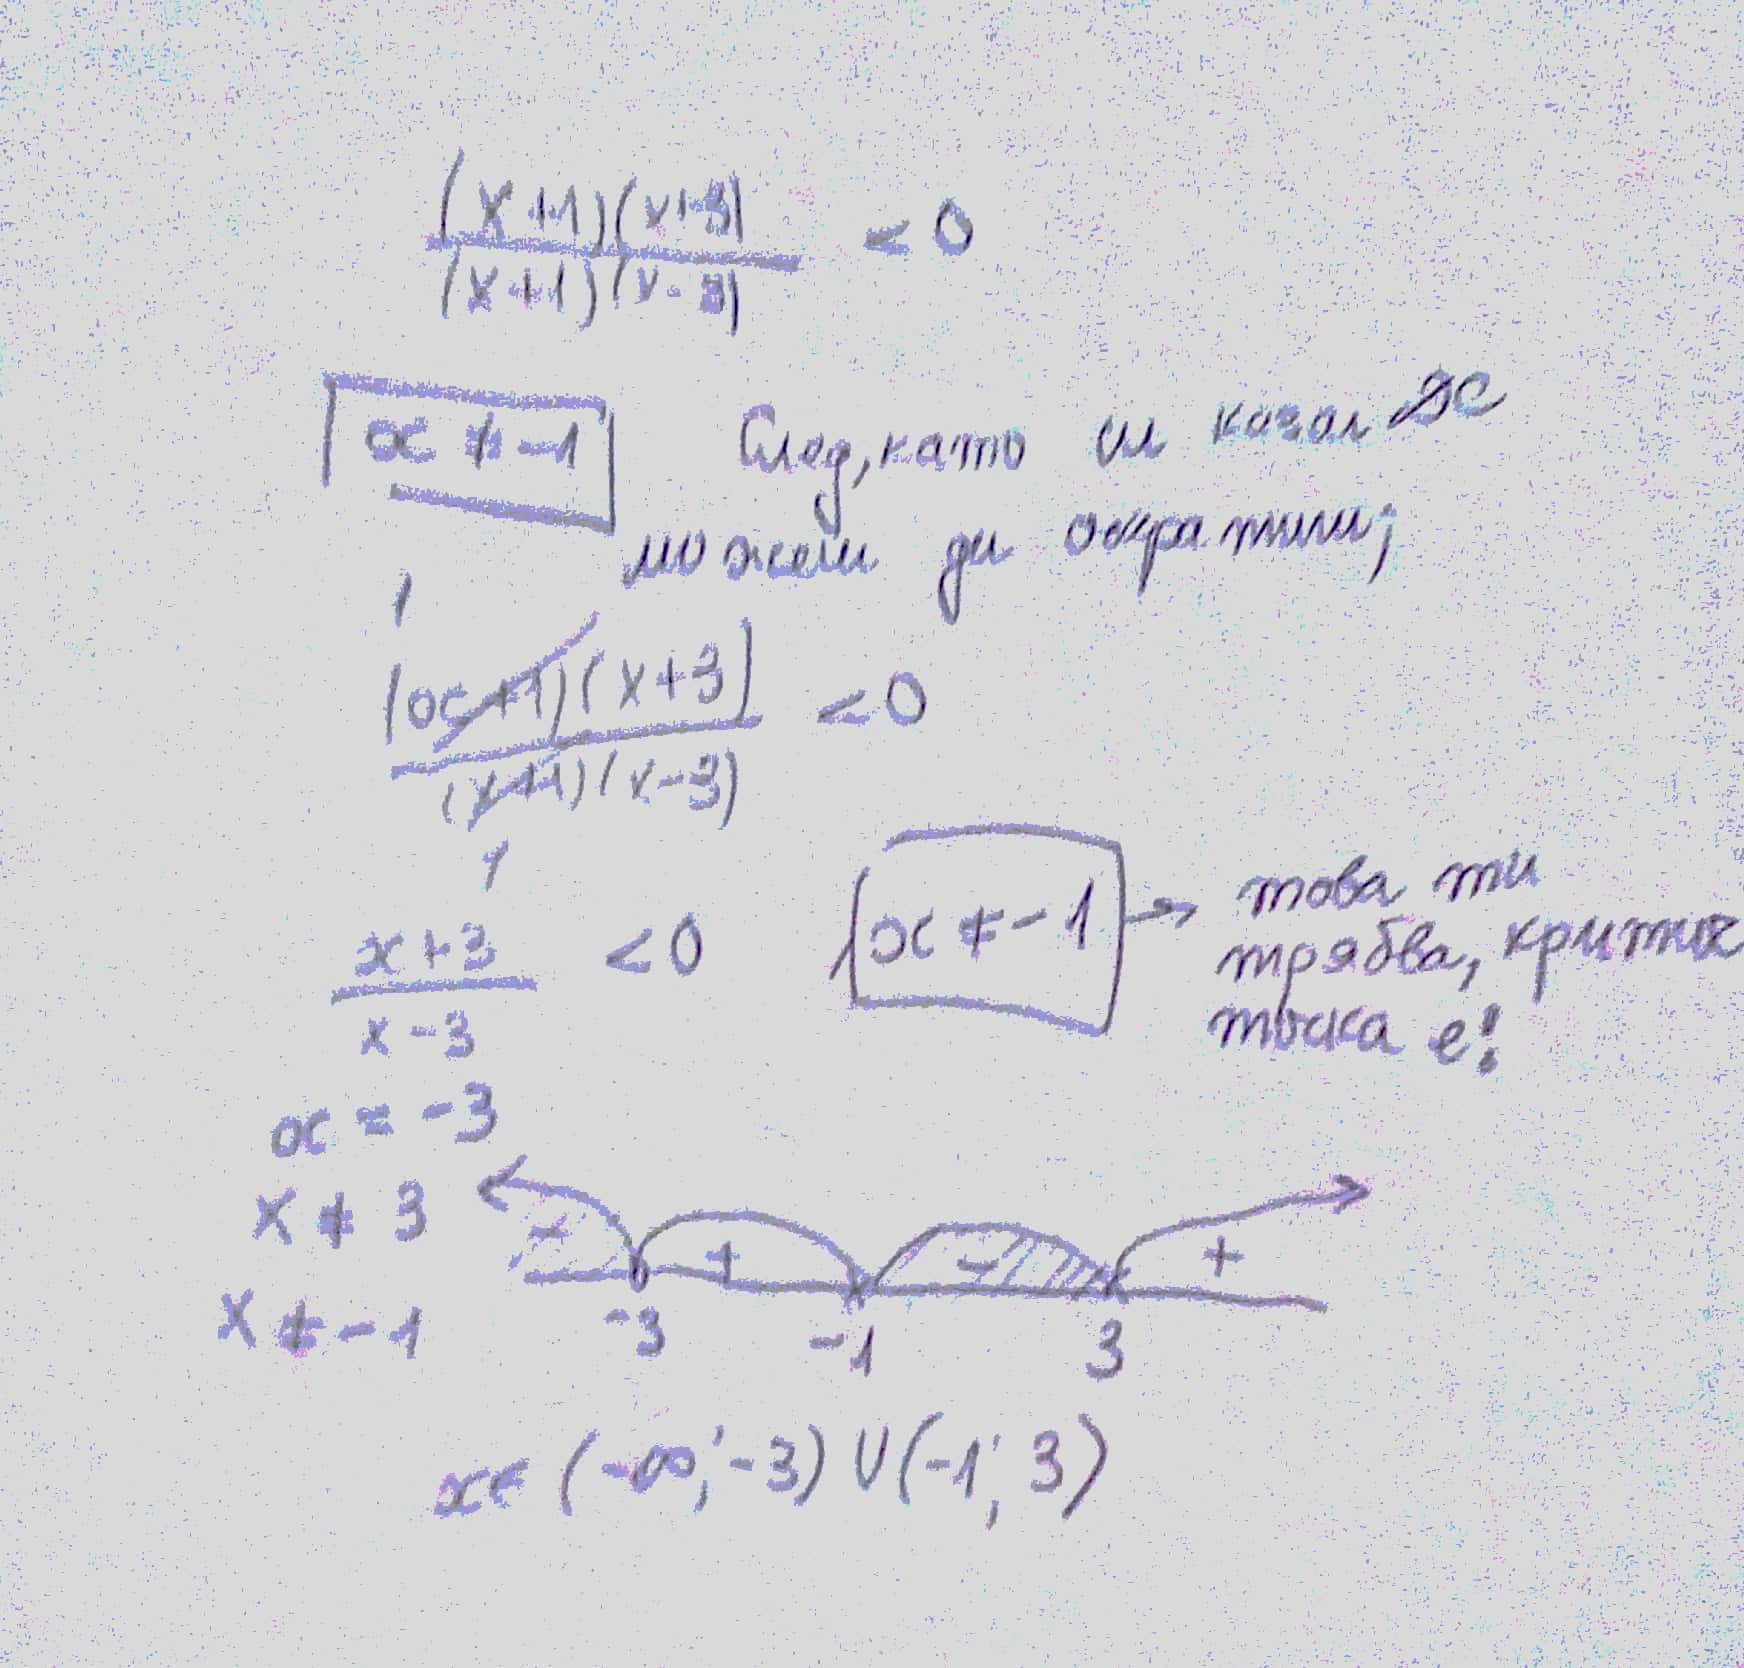 (x+1)(x+3)
/
(x+1)(x-3) < 0
x ≠ -1 След, като си казал ДС
можем да съкратим;
1
(x+1)(x+3)
/
(x+1)(x-3) < 0
1
x+3
/
x-3 < 0 x ≠ -1 → това ти
трябва, критич
точка е!
x = -3
x ≠ 3
x ≠ -1
- + - +
-3 -1 3
x ∈ (-∞; -3) ∪ (-1; 3)